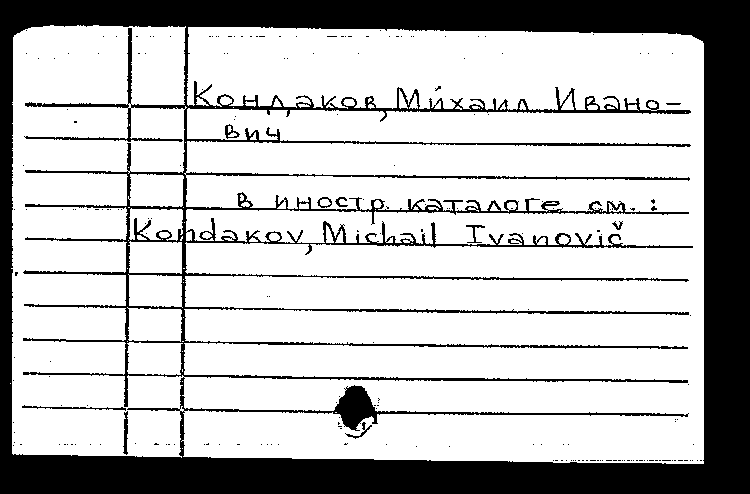 Кондаков, Михаил Ивано-
вич
в иностр. каталоге см.:
Kondakov, Michail Ivanovič